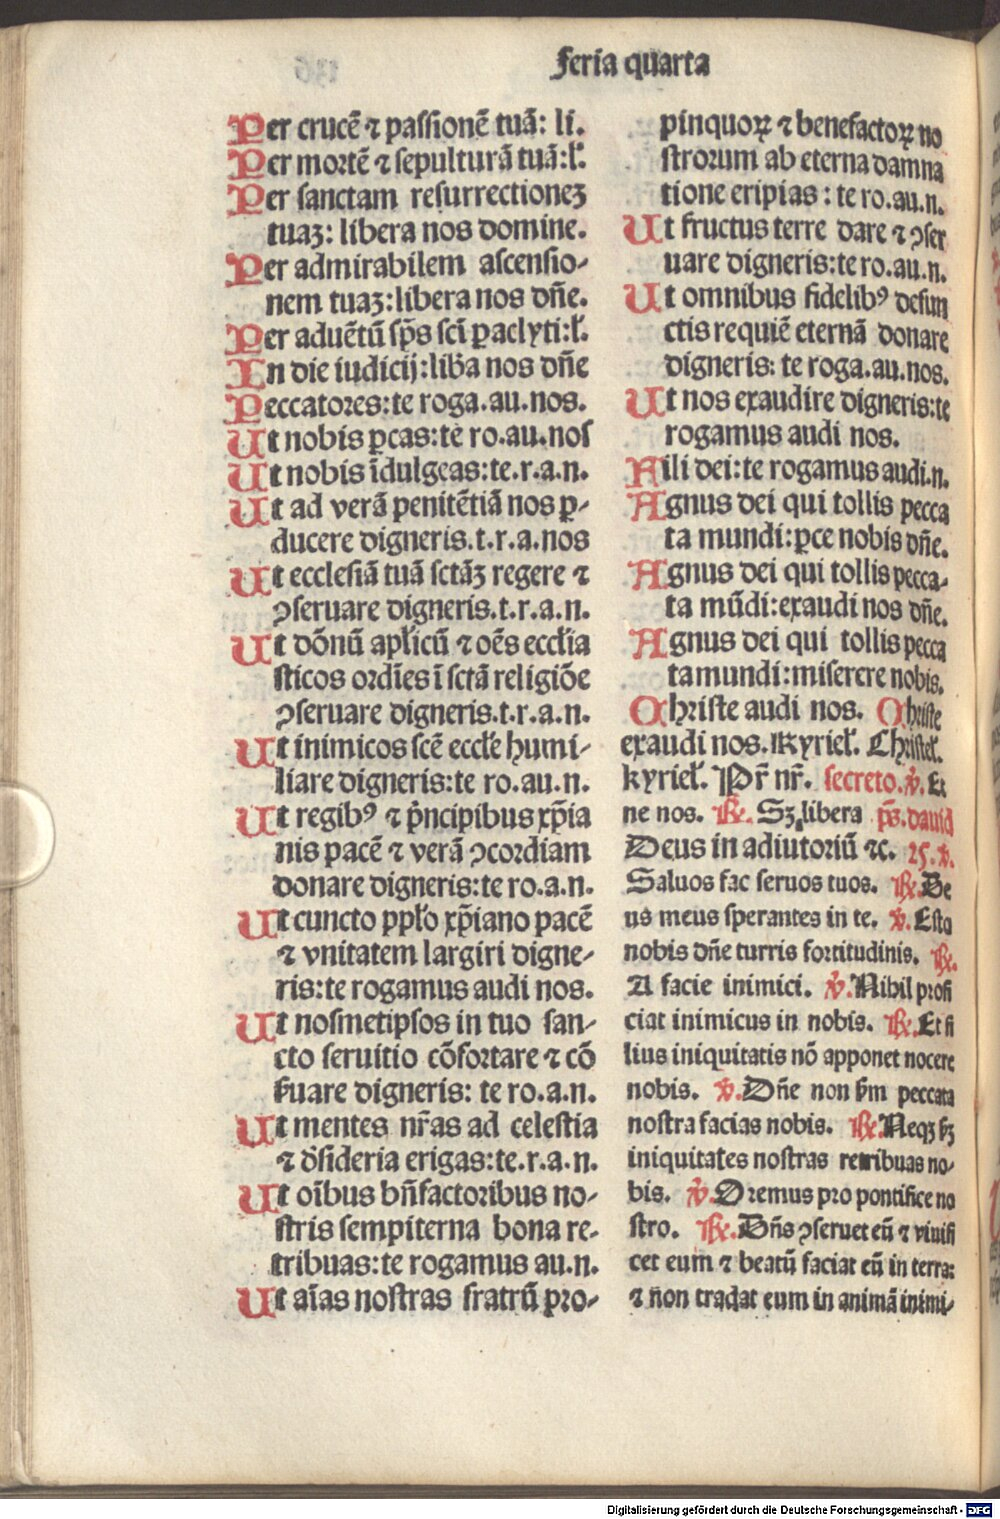 Feria quarta
Per crucē ⁊ passionē tuā: li.
Per mortē ⁊ sepulturā tuā:ł.
Per sanctam resurrectioneꝫ
tuaꝫ: libera nos domine.
Per admirabilem ascensio-
nem tuaꝫ:libera nos dn̄e.
Per aduētū sp̄s sc̄i ꝑaclyti:ł.
In die iudicij:lib̄a nos dn̄e
Peccatores:te roga.au.nos.
Ut nobis ꝑcas:te ro.au.nos
Ut nobis īdulgeas:te.r.a.n.
Ut ad verā penitētiā nos ꝑ-
ducere digneris.t.r.a.nos
Ut ecclesiā tuā sctāꝫ regere ⁊
ꝯseruare digneris.t.r.a.n.
Ut dōnū apłicū ⁊ oēs eccłia
sticos ordīes ī sctā religiōe
ꝯseruare digneris.t.r.a.n.
Ut inimicos scē eccłe humi-
liare digneris:te ro.au.n.
Ut regibꝰ ⁊ pͥncipibus xp̄ia
nis pacē ⁊ verā ꝯcordiam
donare digneris:te ro.a.n.
Ut cuncto ppło xp̄iano pacē
⁊ vnitatem largiri digne-
ris:te rogamus audi nos.
Ut nosmetipsos in tuo san-
cto seruitio cōfortare ⁊ cō
ẜuare digneris: te ro.a.n.
Ut mentes nr̄as ad celestia
⁊ d̄sideria erigas:te.r.a.n.
Ut oībus bn̄factoribus no-
stris sempiterna bona re-
tribuas:te rogamus au.n.
Ut aīas nostras fratrū pro-
pinquoꝝ ⁊ benefactoꝝ no
strorum ab eterna damna
tione eripias : te ro.au.n.
Ut fructus terre dare ⁊ ꝯser
uare digneris:te ro.au.n.
Ut omnibus fidelibꝰ defun
ctis requiē eternā donare
digneris: te roga.au.nos.
Ut nos exaudire digneris:te
rogamus audi nos.
Fili dei:te rogamus audi.n.
Agnus dei qui tollis pecca
ta mundi:ꝑce nobis dn̄e.
Agnus dei qui tollis pecca-
ta mūdi:exaudi nos dn̄e.
Agnus dei qui tollis pecca
ta mundi:miserere nobis.
Christe audi nos. Christe
exaudi nos. Kyrieł. Christeł.
kyrieł. Pr̄ nr̄. secreto. ℣. Et
ne nos. ℟. Sꝫ libera ps̄. dauid
Deus in adiutoriū ⁊c. 25. ℣.
Saluos fac seruos tuos. ℟. De
us meus sperantes in te. ℣. Esto
nobis dn̄e turris fortitudinis. ℟.
A facie inimici. ℣. Nihil profi
ciat inimicus in nobis. ℟. Et fi
lius iniquitatis nō apponet nocere
nobis. ℣. Dn̄e non ẜm peccata
nostra facias nobis. ℟. Neqꝫ ẜꝫ
iniquitates nostras retribuas no-
bis. ℣. Oremus pro pontifice no
stro. ℟. Dn̄s ꝯseruet eū ⁊ viuifi
cet eum ⁊ beatū faciat eū in terra:
⁊ non tradat eum in animā inimi-
Digitalisierung gefördert durch die Deutsche Forschungsgemeinschaft - DFG